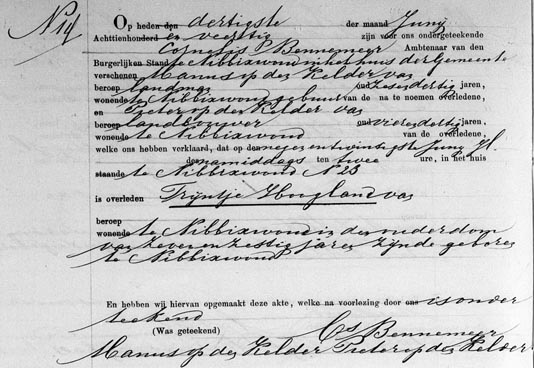 N 14
Op heden den dertigste der maand Junij
Achttienhonderd en veertig zijn voor ons ondergeteekende
Cornelis P Bennemeer Ambtenaar van den
Burgerlijken Stand te Nibbixwoud in het huis der Gemeente
verschenen Manus op den Kelder van
beroep landman oud zes en dertig jaren,
wonende te Nibbixwoud gebuur van de na te noemen overledene,
en Pieter op den Kelder van
beroep landbouwer oud vier en dertig jaren,
wonende te Nibbixwoud van de overledene,
welke ons hebben verklaard, dat op den negen en twintigste Junij Jl.
des namiddags ten twee ure, in het huis
staande te Nibbixwoud N 23
is overleden Trijntje Hoogland van
beroep
wonende te Nibbixwoud in den ouderdom
van zeven en zestig jaren zijnde geboren
te Nibbixwoud
En hebben wij hiervan opgemaakt deze akte, welke na voorlezing door ons is onder
teekend
(Was geteekend) Cs Bennemeer
Manus op den Kelder Pieter op den Kelder